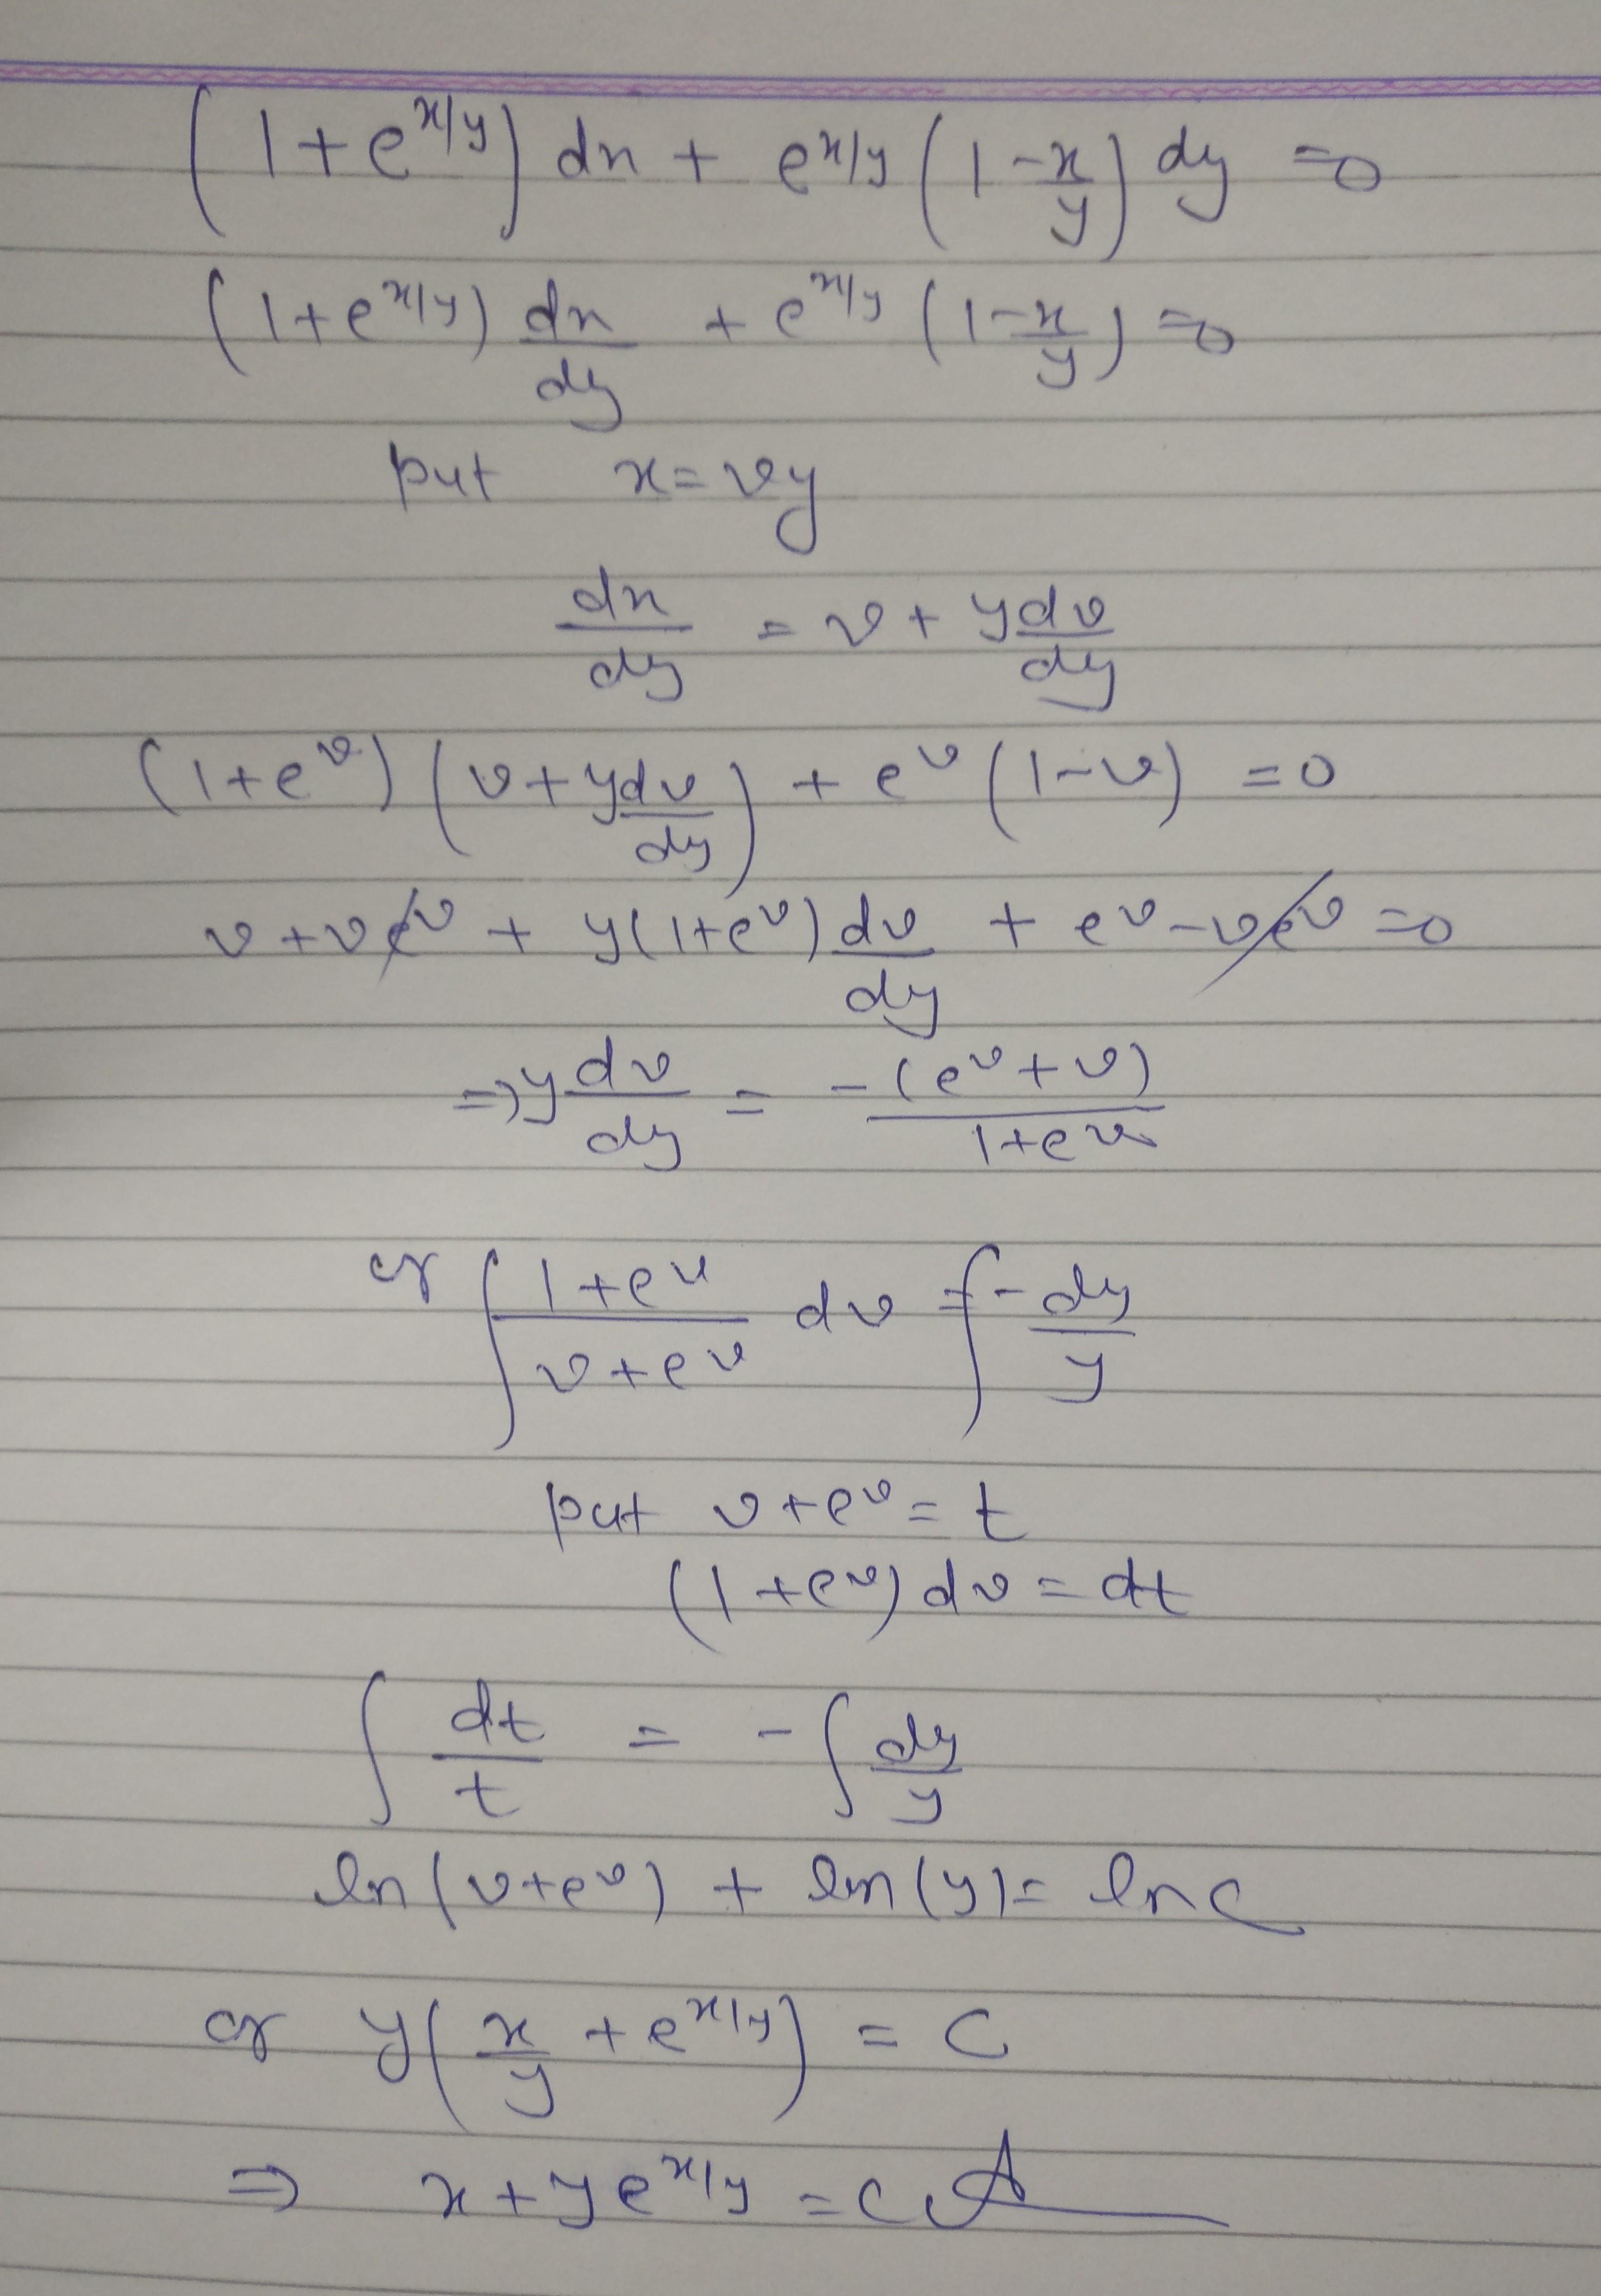 (1+e^{x/y}) dx + e^{x/y} (1-x/y) dy =0
(1+e^{x/y}) dx/dy + e^{x/y} (1-x/y) =0
put x=vy
dx/dy = v + y dv/dy
(1+e^v) (v+y dv/dy) + e^v (1-v) =0
v + ve^v + y(1+e^v) dv/dy + e^v - ve^v =0
⇒ y dv/dy = -(e^v+v)/(1+e^v)
or ∫ (1+e^v)/(v+e^v) dv = ∫ -dy/y
put v+e^v = t
(1+e^v) dv = dt
∫ dt/t = -∫ dy/y
ln(v+e^v) + ln(y) = lnc
or y(x/y + e^{x/y}) = c
⇒ x+ye^{x/y} = c A